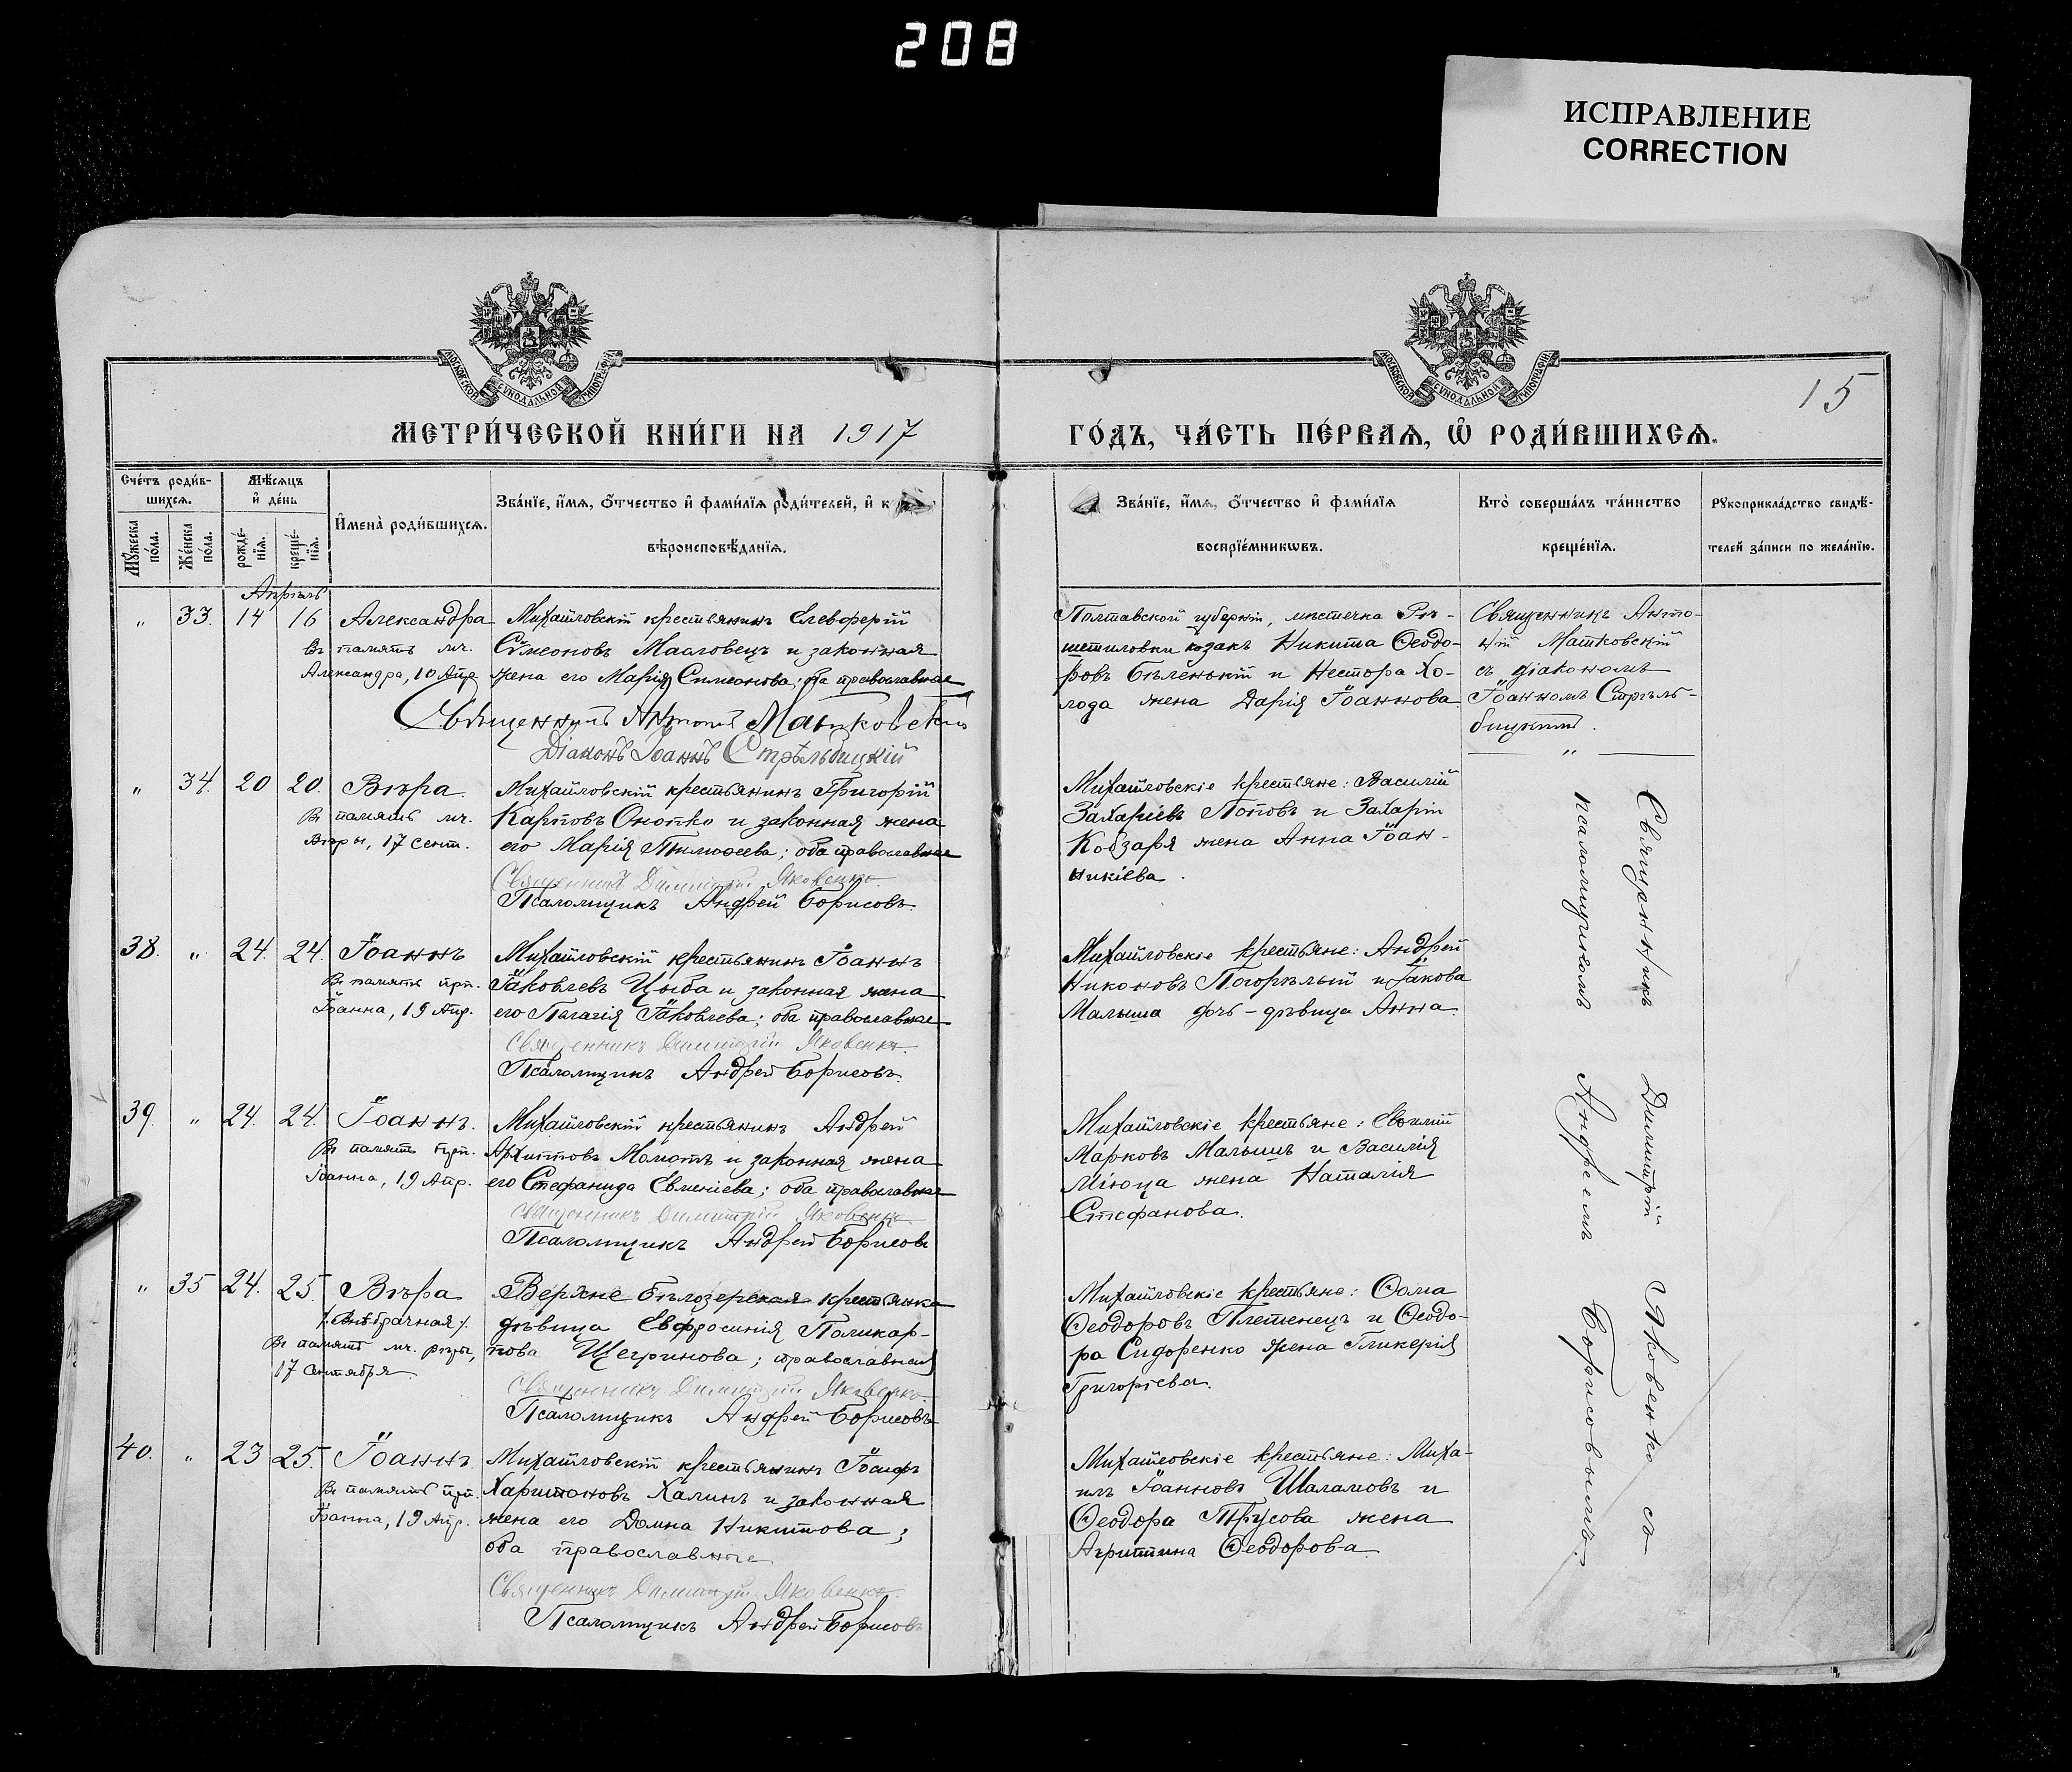 208
ИСПРАВЛЕНИЕ
CORRECTION
МОСКОВСКОЙ СѴНОДАЛЬНОЙ ТИПОГРАФІИ
МОСКОВСКОЙ СѴНОДАЛЬНОЙ ТИПОГРАФІИ
15
МЕТРИ́ЧЕСКОЙ КНИ́ГИ НА 1917
ГО́ДЪ, ЧА́СТЬ ПЕ́РВАѦ, Ѽ РОДИ́ВШИХСѦ.
Сче́тъ роди́в-
шихсѧ.
Мѣ́сѧцъ
и҆ де́нь
Мꙋ́жеска по́ла.
Же́нска по́ла.
рожде́-нїѧ.
креще́-нїѧ.
И҆мена̀ роди́вшихсѧ.
Зва́нїе, и҆́мѧ, ѻ҆́тчество и҆ фами́лїѧ роди́телей, и҆ к
вѣроисповѣ́данїѧ.
Зва́нїе, и҆́мѧ, ѻ҆́тчество и҆ фами́лїѧ
воспрїе́мникѡвъ.
Кто̀ соверша́лъ та́инство
креще́нїѧ.
Рꙋкоприкла́дство свидѣ́-
телей за́писи по жела́нїю.
Апрѣль
" 33. 14 16 Александра
Въ память мч.
Александра, 10 Апр.
Михайловскій крестьянинъ Елевферій
Сѵмеоновъ Масловецъ и законная
жена его Марія Симеонова; оба православные
Священникъ Антоній Матковскій
Діаконъ Іоаннъ Стрѣльбицкій
Полтавской губерніи, мѣстечка Рѣ-
шетиловки козакъ Никита Ѳеодо-
ровъ Бѣленькій и Нестора Хо-
лода жена Дарія Іоаннова
Священникъ Анто-
ній Матковскій
съ діакономъ
Іоанномъ Стрѣль-
бицкимъ.
"
" 34. 20 20. Вѣра.
Въ память мч.
Вѣры, 17 Сент.
Михайловскій крестьянинъ Григорій
Карповъ Онопко и законная жена
его Марія Тимоѳеева; оба православные
Священникъ Димитрій Яковенко.
Псаломщикъ Андрей Борисовъ.
Михайловскіе крестьяне: Василій
Захаріевъ Поповъ и Захарія
Кобзаря жена Анна Іоан-
никіева.
38. " 24. 24. Іоаннъ
Въ память прп.
Іоанна, 19 Апр.
Михайловскій крестьянинъ Іоаннъ
Іаковлевъ Цыба и законная жена
его Пелагія Іаковлева; оба православные
Священникъ Димитрій Яковенко.
Псаломщикъ Андрей Борисовъ.
Михайловскіе крестьяне: Андрей
Никоновъ Погорѣлый и Іакова
Малыша дочь - дѣвица Анна
39. " 24. 24. Іоаннъ.
Въ память прп.
Іоанна, 19 Апр.
Михайловскій крестьянинъ Андрей
Архиповъ Мамотъ и законная жена
его Стефанида Евменіева; оба православные
Священникъ Димитрій Яковенко
Псаломщикъ Андрей Борисовъ
Михайловскіе крестьяне:
Марковъ Малышъ и Василія
жена Наталія
Стефанова.
" 35 24. 25. Вѣра
/.Внѣбрачная/.
Въ память мч. Вѣры,
17 Сентября
Верхне Бѣлозерская крестьянка
дѣвица Евфросинія Поликар-
пова Щегринова; православная
Священникъ Димитрій Яковенко
Псаломщикъ Андрей Борисовъ
Михайловскіе крестьяне: Ѳома
Ѳеодоровъ Плетенецъ и Ѳеодо-
ра Сидоренко жена Гликерія
Григоріева.
40. " 23 25. Іоаннъ
Въ память прп.
Іоанна, 19 Апр.
Михайловскій крестьянинъ Іосифъ
Харитоновъ Халинъ и законная
жена его Домна Никитова;
оба православные
Священникъ Димитрій Яковенко.
Псаломщикъ Андрей Борисовъ
Михайловскіе крестьяне: Миха-
илъ Іоанновъ Шаламовъ и
Ѳеодора Трусова жена
Агриппина Ѳеодорова.
Священникъ Димитрій Яковенко съ
псаломщикомъ Андреемъ Борисовымъ.